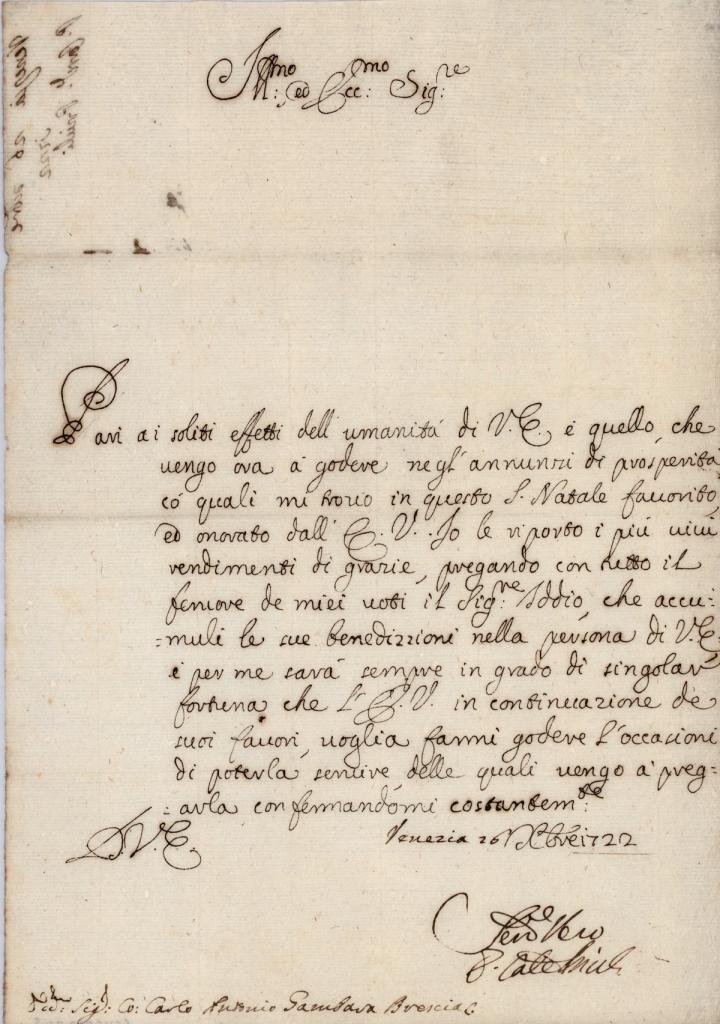 Ill:mo ed Ecc:mo Sig:re
Pari ai soliti effetti dell' umanitá di V.E. é quello, che
vengo ora a godere negl' annunzi di prosperitá
có quali mi trovo in questo S. Natale favorito,
ed onorato dall' E.V.. Io le riporto i piú vivi
rendimenti di grazie, pregando con tutto il
fervore de miei voti il Sig:re Iddio, che accu:
:muli le sue benedizzioni nella persona di V.E.
é per me sará sempre in grado di singolar
fortuna che l' E.V. in continuazione de
suoi favori, voglia farmi godere l'occasioni
di poterla servire, delle quali vengo a preg:
:arla confermandomi costantem:te
D.V.E.
Venezia 26 Xbre 1722
Ser:e Vero
Sig:r Co: Carlo Antonio Gambara Brescia